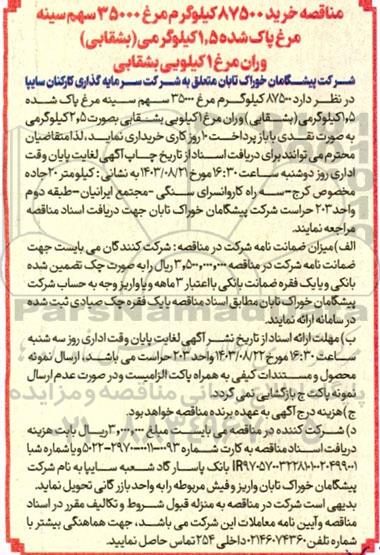 مناقصه خرید ۸۷۵۰۰ کیلوگرم مرغ ۳۵۰۰۰ سهم سینه
مرغ پاک شده ۱,۵ کیلوگرمی (بشقابی)
وران مرغ ۱ کیلویی بشقابی
شرکت پیشگامان خوراک تابان متعلق به شرکت سرمایه گذاری کارکنان سایپا
در نظر دارد ۸۷۵۰۰ کیلوگرم مرغ ۳۵۰۰۰ سهم سینه مرغ پاک شده
۱,۵ کیلوگرمی (بشقابی) وران مرغ ۱ کیلویی بشقابی بصورت ۲,۵ کیلوگرمی
به صورت نقدی با باز پرداخت ۱۰ روز کاری خریداری نمایید، لذا متقاضیان
محترم می توانند برای دریافت اسناد از تاریخ چاپ آگهی لغایت پایان وقت
اداری روز دوشنبه ساعت ۱۶:۳۰ مورخ ۱۴۰۳/۰۸/۲۱ به نشانی: کیلومتر ۲۰ جاده
مخصوص کرج-سه راه کاروانسرای سنگی -مجتمع ایرانیان-طبقه دوم
واحد ۲۰۳ حراست شرکت پیشگامان خوراک تابان جهت دریافت اسناد مناقصه
مراجعه نمایند.
الف) میزان ضمانت نامه شرکت در مناقصه: شرکت کنندگان می بایست جهت
ضمانت نامه شرکت در مناقصه ۳,۵۰۰,۰۰۰,۰۰۰ ریال را به صورت چک تضمین شده
بانکی و یا یک فقره ضمانت بانکی با اعتبار ۳ ماهه و یا واریز وجه به حساب شرکت
پیشگامان خوراک تابان مطابق اسناد مناقصه یا یک فقره چک صیادی ثبت شده
در سامانه ارائه نمایند.
ب) مهلت ارائه اسناد از تاریخ نشر آگهی لغایت پایان وقت اداری روز سه شنبه
ساعت ۱۶:۳۰ مورخ ۱۴۰۳/۰۸/۲۲ واحد ۲۰۳ حراست می باشد، ارسال نمونه
محصول و مستندات کیفی به همراه پاکت الزامیست و در صورت عدم ارسال
نمونه پاکت ج بازگشایی نمی گردد.
ج) هزینه درج آگهی به عهده برنده مناقصه خواهد بود.
د) شرکت کننده در مناقصه می بایست مبلغ ۳,۰۰۰,۰۰۰ ریال بابت هزینه
دریافت اسناد مناقصه به کارت شماره و یا شماره شبا
بانک پاسارگاد شعبه سایپا به نام شرکت
پیشگامان خوراک تابان واریز و فیش مربوطه را به واحد بازرگانی تحویل نماید.
بدیهی است شرکت در مناقصه به منزله قبول شروط و تکالیف مقرر در اسناد
مناقصه و آیین نامه معاملات این شرکت می باشد، جهت هماهنگی بیشتر با
شماره تلفن ۰۲۱۴۶۰۷۴۳۶۰ داخلی ۲۵۴ تماس حاصل نمایید.